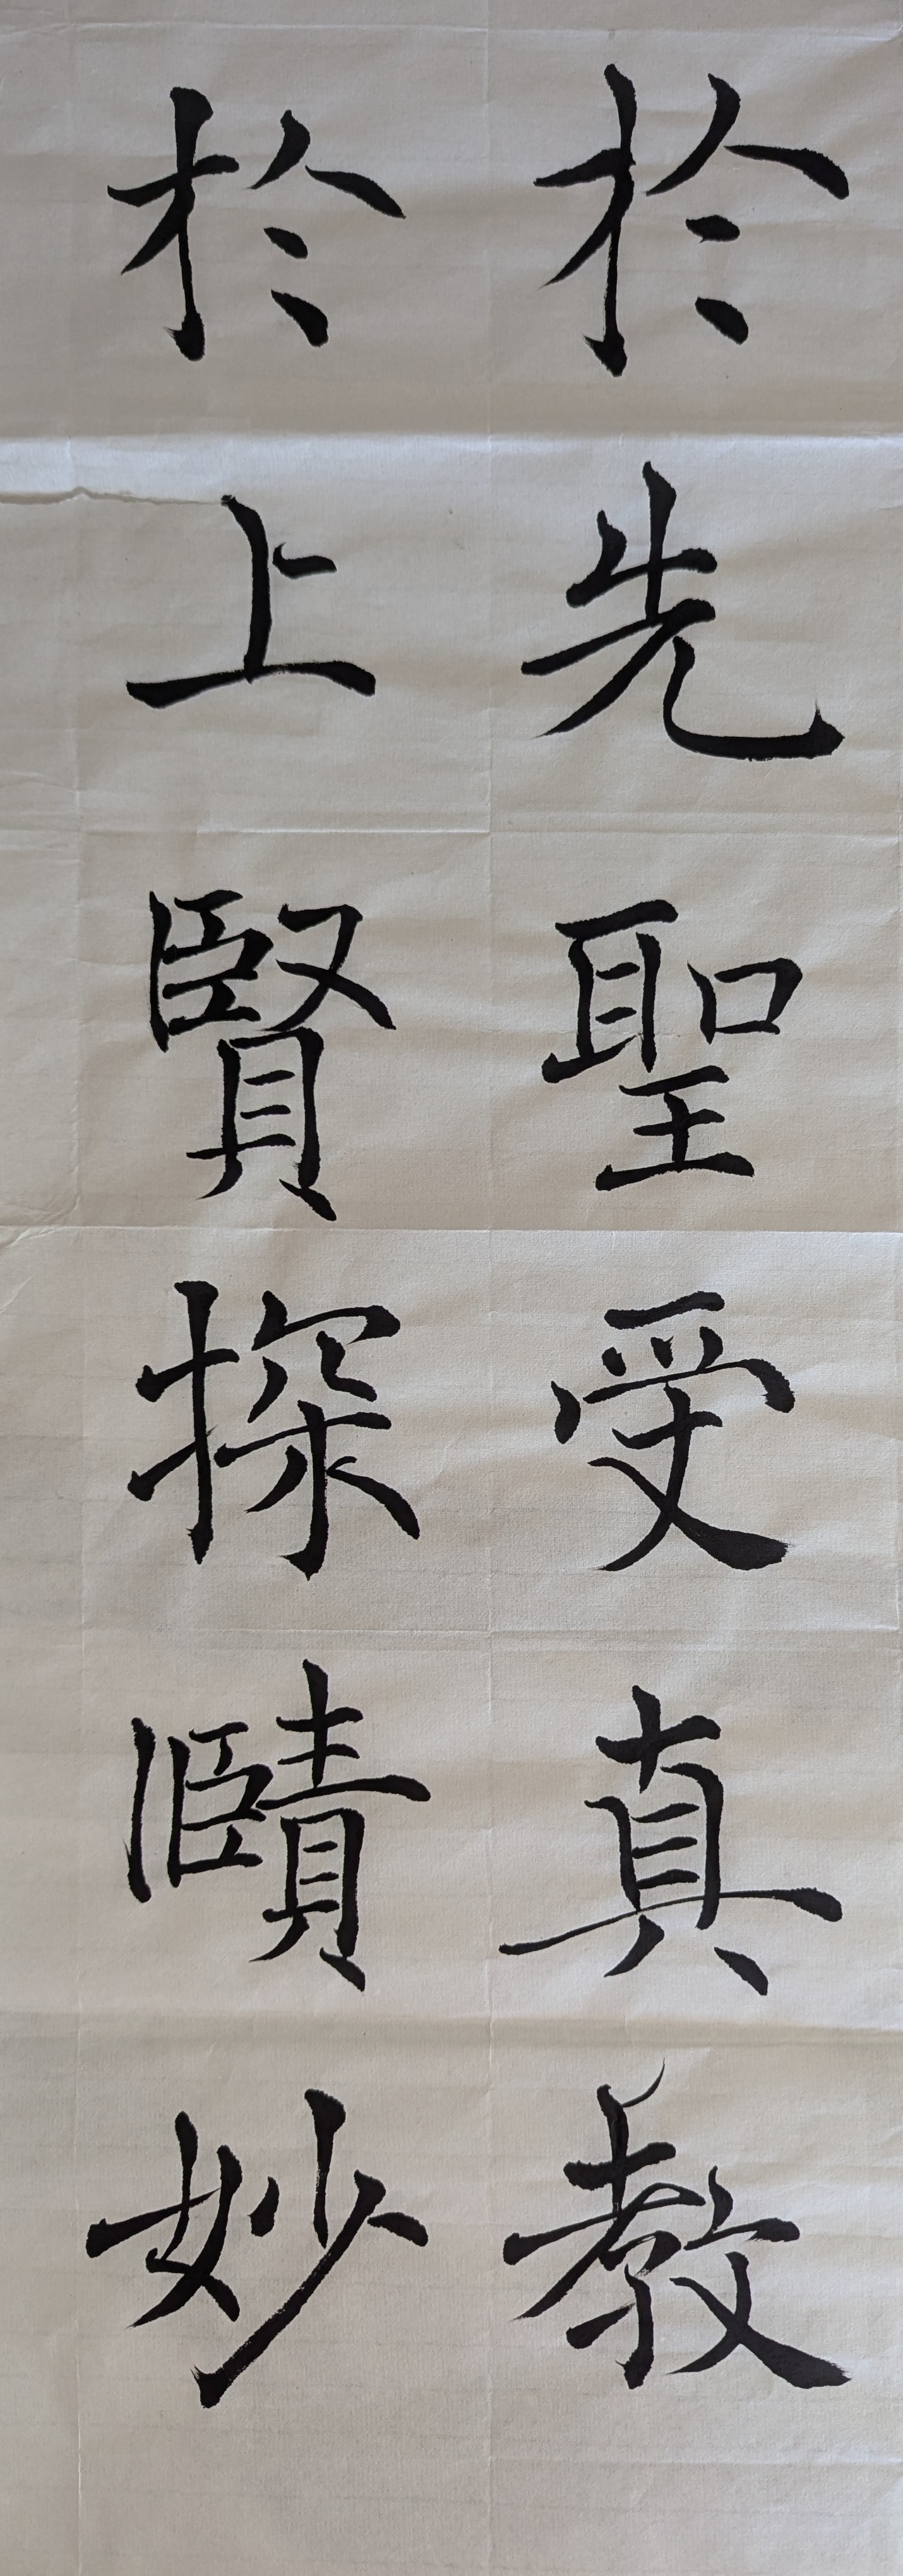 於先聖受真教
於上賢探賾妙